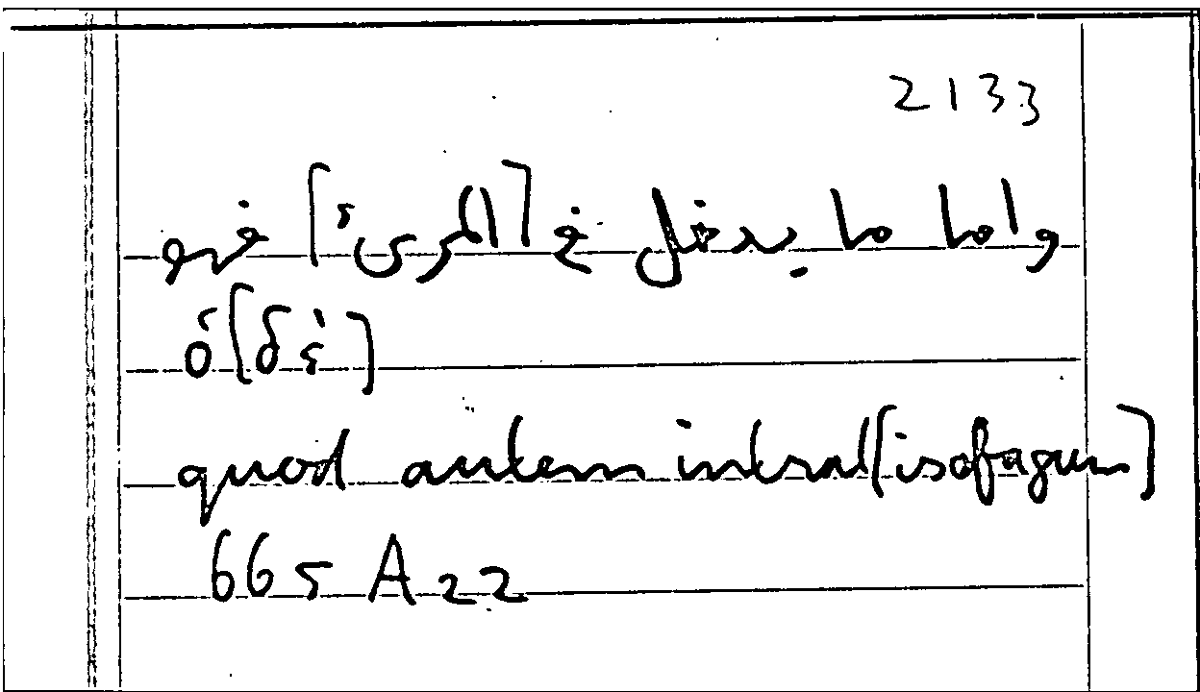 2133
واما ما يدخل في [المرىء] فهو
ὁ [δὲ]
quod autem intrat [isofagum]
665 A 22